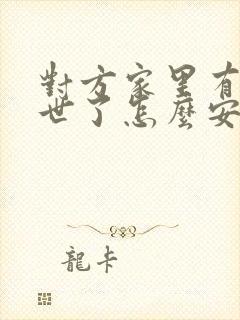 對方家里有
世了怎麼安
龍卡